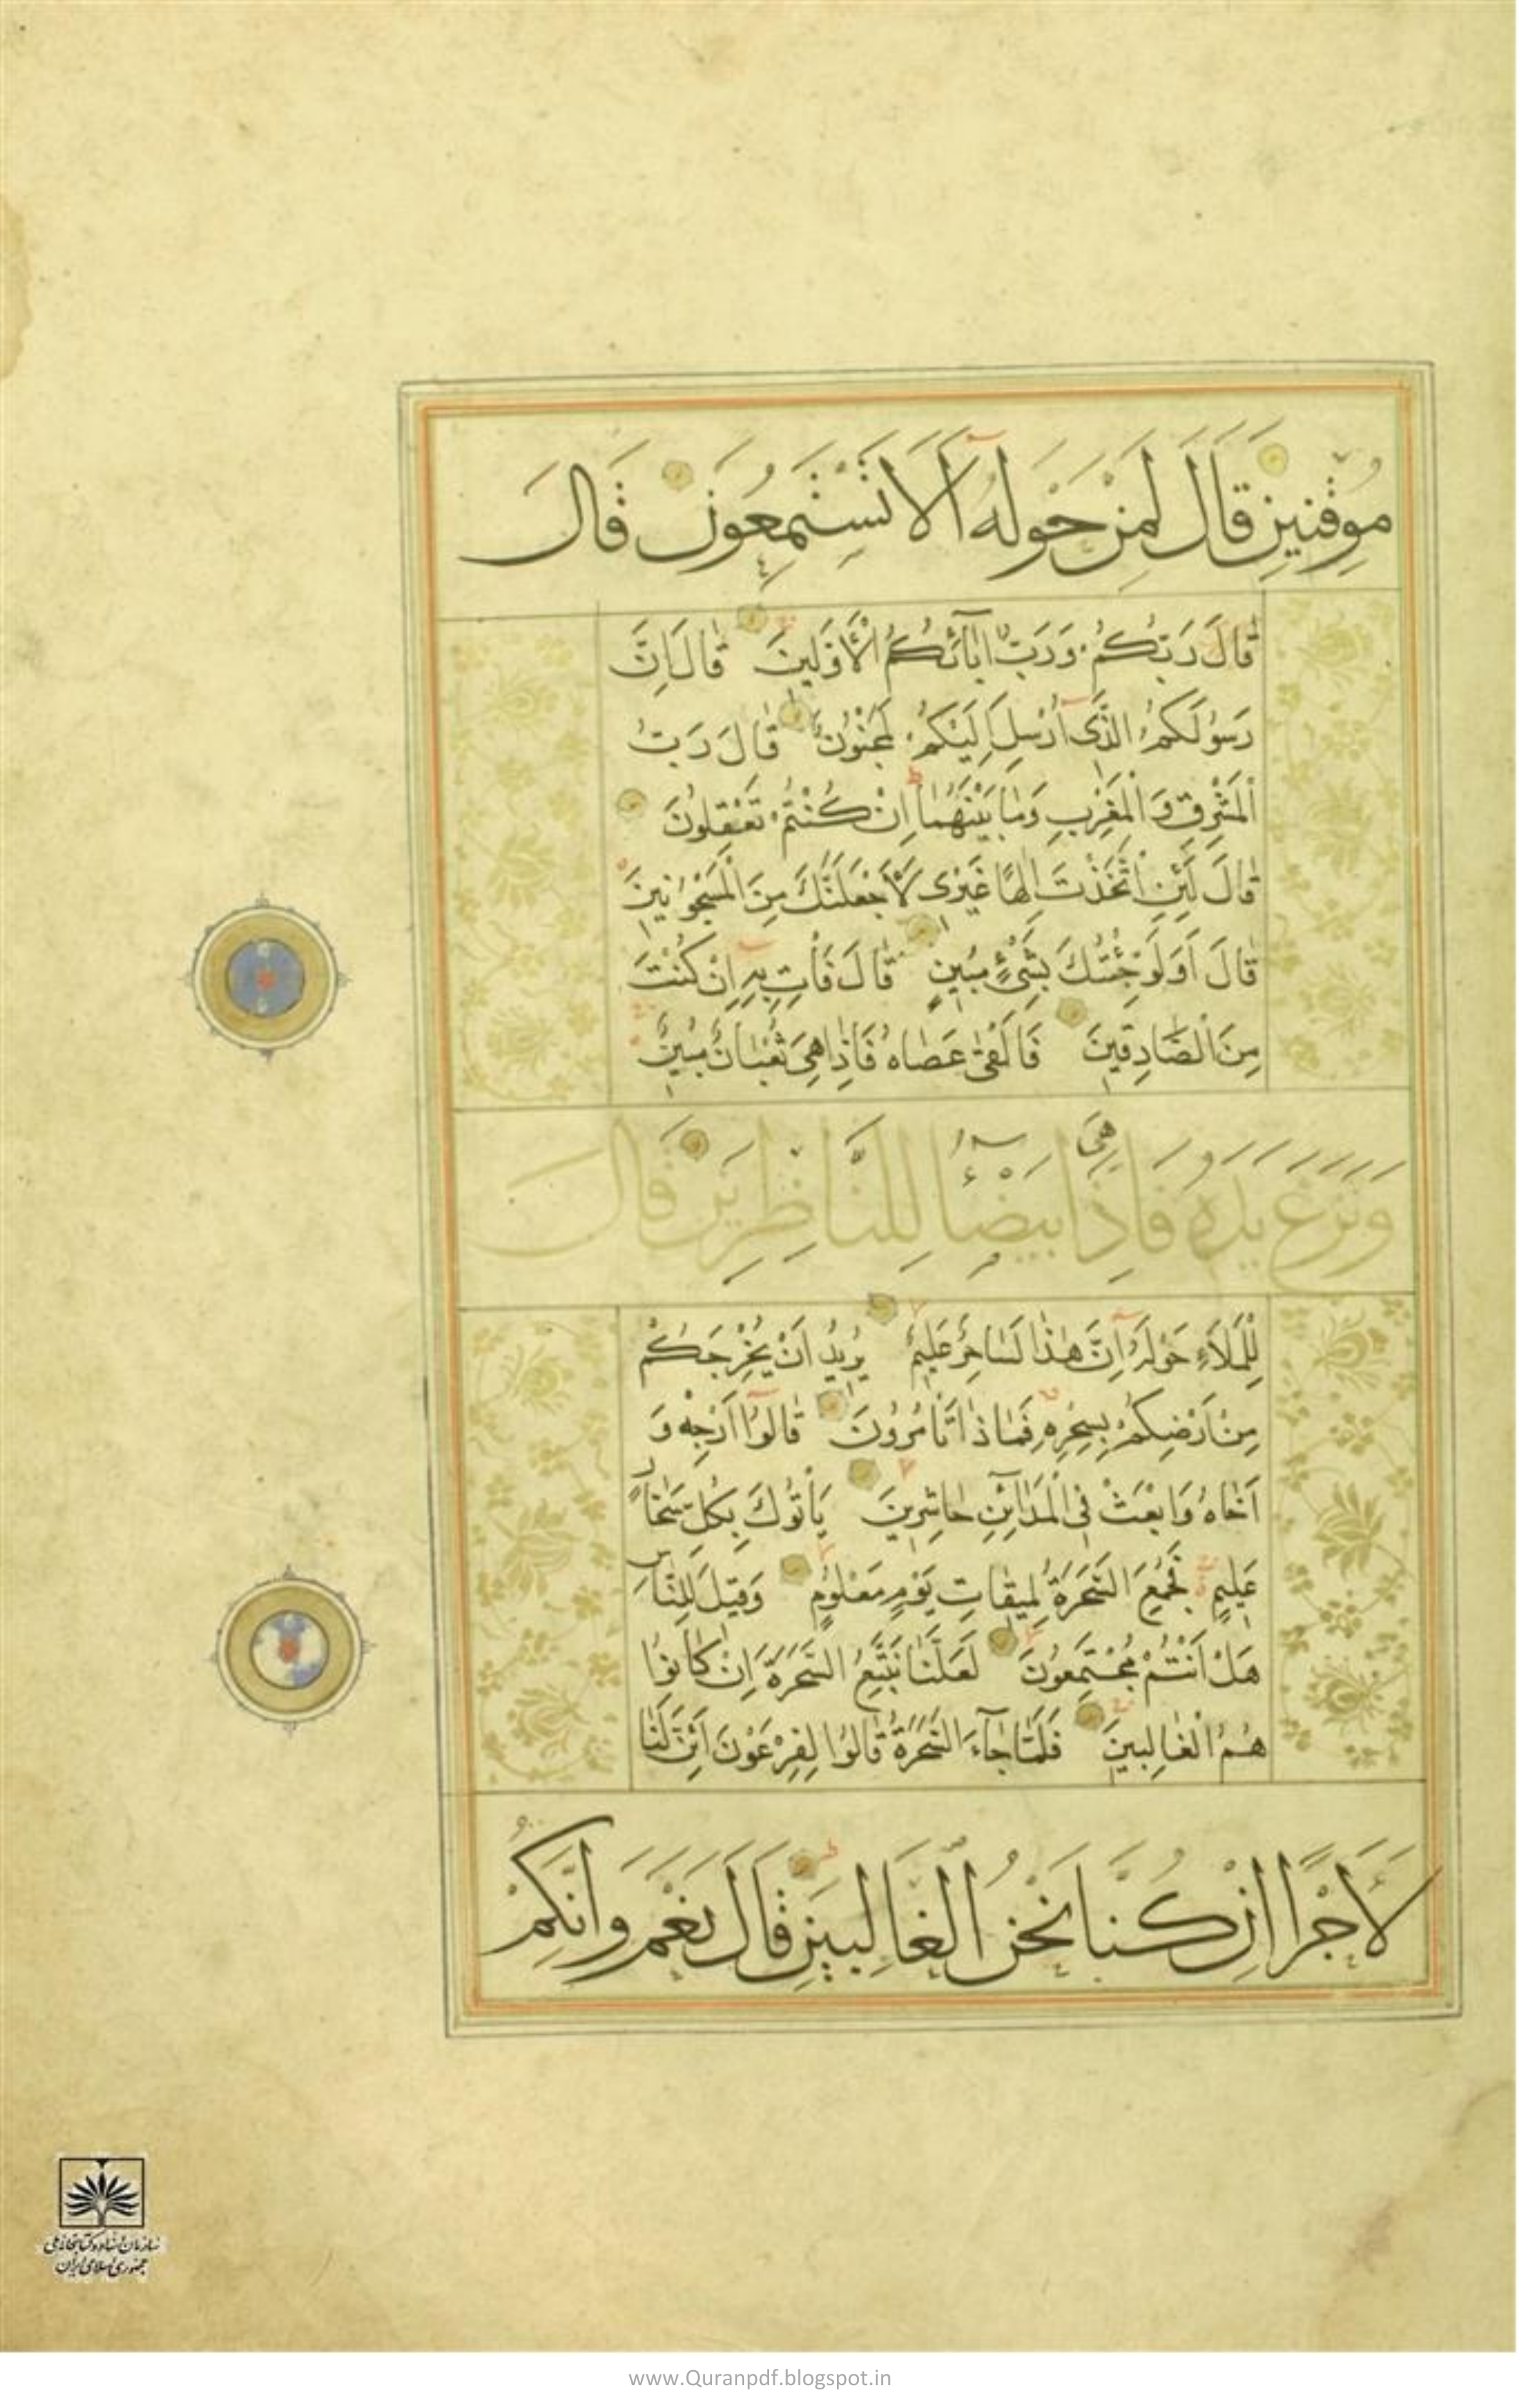 مُوقِنِينَ قَالَ لِمَنْ حَوْلَهُ آلَا تَسْتَمِعُونَ قَالَ
قَالَ رَبُّكُمْ وَرَبُّ اٰبَآئِكُمُ الْأَوَّلِينَ قَالَ اِنَّ
رَسُولَكُمُ الَّذِى اُرْسِلَ اِلَيْكُمْ لَمَجْنُونٌ قَالَ رَبُّ
الْمَشْرِقِ وَالْمَغْرِبِ وَمَا بَيْنَهُمَا اِنْ كُنْتُمْ تَعْقِلُونَ
قَالَ لَئِنِ اتَّخَذْتَ اِلٰهًا غَيْرِى لَأَجْعَلَنَّكَ مِنَ الْمَسْجُونِينَ
قَالَ اَوَلَوْ جِئْتُكَ بِشَىْءٍ مُبِينٍ قَالَ فَأْتِ بِهِ اِنْ كُنْتَ
مِنَ الصَّادِقِينَ فَاَلْقٰى عَصَاهُ فَاِذَا هِىَ ثُعْبَانٌ مُبِينٌ
وَنَزَعَ يَدَهُ فَاِذَا هِىَ بَيْضَآءُ لِلنَّاظِرِينَ قَالَ
لِلْمَلَاءِ حَوْلَهُ اِنَّ هٰذَا لَسَاحِرٌ عَلِيمٌ يُرِيدُ اَنْ يُخْرِجَكُمْ
مِنْ اَرْضِكُمْ بِسِحْرِهِ فَمَاذَا تَأْمُرُونَ قَالُوا اَرْجِهْ وَ
اَخَاهُ وَابْعَثْ فِى الْمَدَآئِنِ حَاشِرِينَ يَأْتُوكَ بِكُلِّ سَحَّارٍ
عَلِيمٍ فَجُمِعَ السَّحَرَةُ لِمِيقَاتِ يَوْمٍ مَعْلُومٍ وَقِيلَ لِلنَّاسِ
هَلْ اَنْتُمْ مُجْتَمِعُونَ لَعَلَّنَا نَتَّبِعُ السَّحَرَةَ اِنْ كَانُوا
هُمُ الْغَالِبِينَ فَلَمَّا جَآءَ السَّحَرَةُ قَالُوا لِفِرْعَوْنَ اَئِنَّ لَنَا
لَأَجْرًا اِنْ كُنَّا نَحْنُ الْغَالِبِينَ قَالَ نَعَمْ وَاِنَّكُمْ
سازمان اسناد و کتابخانه ملی
جمهوری اسلامی ایران
www.Quranpdf.blogspot.in